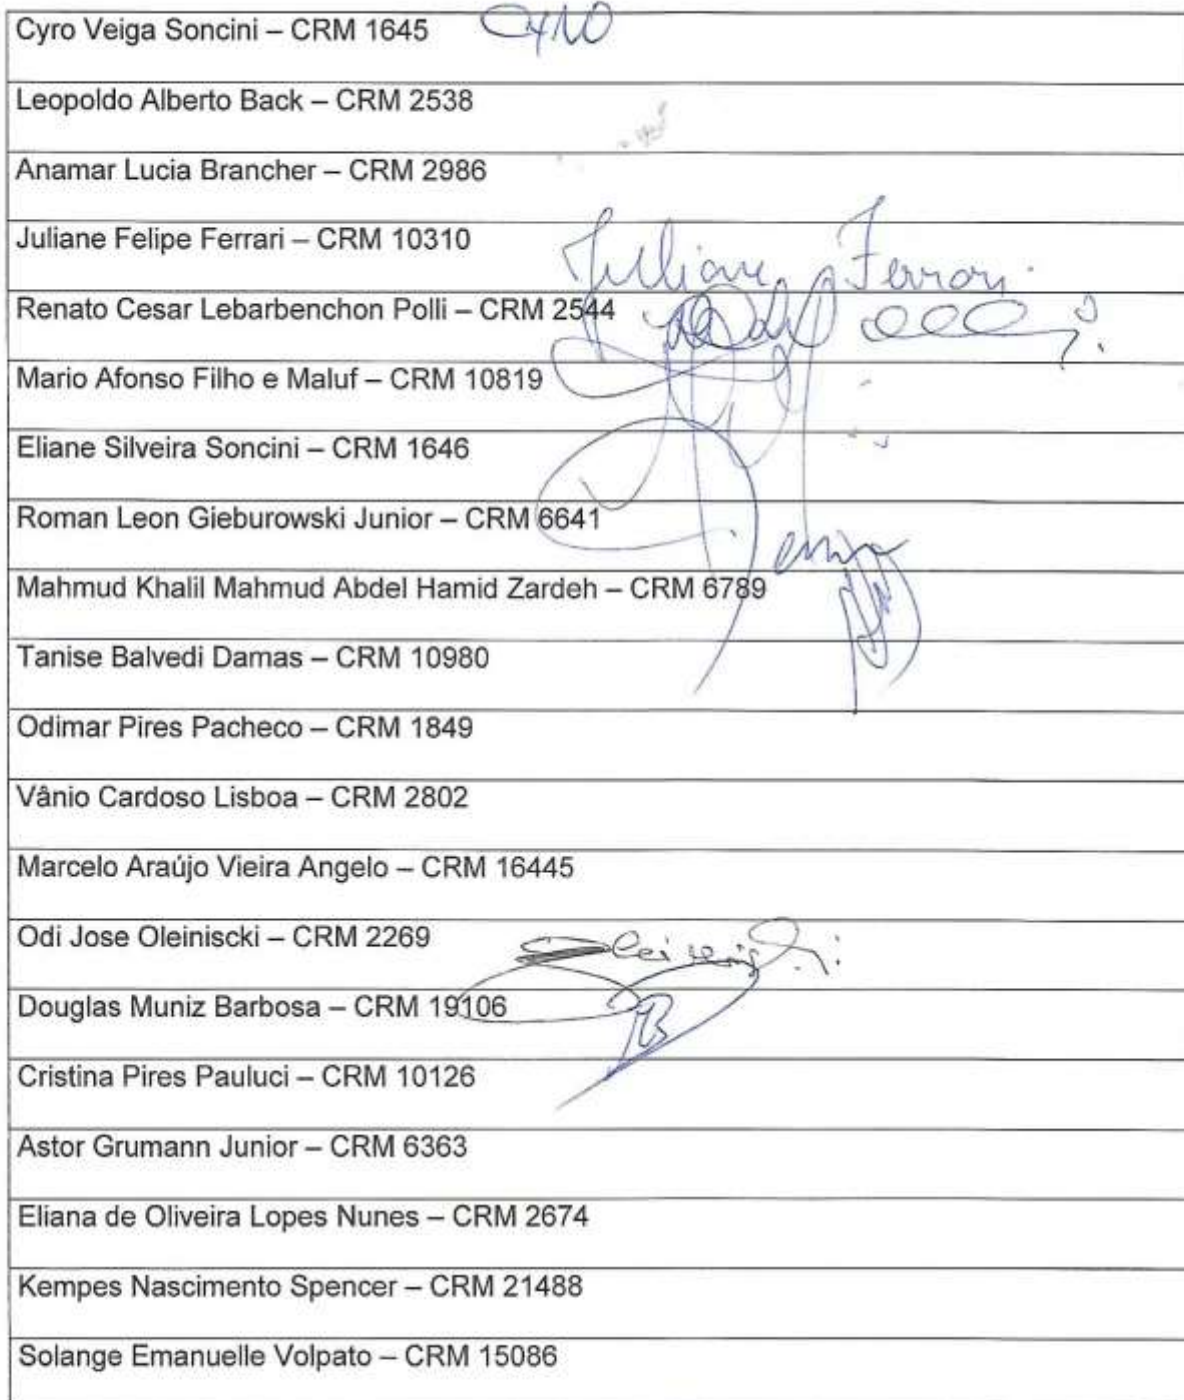 Cyro Veiga Soncini – CRM 1645 Cyro
Leopoldo Alberto Back – CRM 2538
Anamar Lucia Brancher – CRM 2986
Juliane Felipe Ferrari – CRM 10310 Juliane Ferrari
Renato Cesar Lebarbenchon Polli – CRM 2544
Mario Afonso Filho e Maluf – CRM 10819
Eliane Silveira Soncini – CRM 1646
Roman Leon Gieburowski Junior – CRM 6641
Mahmud Khalil Mahmud Abdel Hamid Zardeh – CRM 6789
Tanise Balvedi Damas – CRM 10980
Odimar Pires Pacheco – CRM 1849
Vânio Cardoso Lisboa – CRM 2802
Marcelo Araújo Vieira Angelo – CRM 16445
Odi Jose Oleiniscki – CRM 2269
Douglas Muniz Barbosa – CRM 19106
Cristina Pires Pauluci – CRM 10126
Astor Grumann Junior – CRM 6363
Eliana de Oliveira Lopes Nunes – CRM 2674
Kempes Nascimento Spencer – CRM 21488
Solange Emanuelle Volpato – CRM 15086